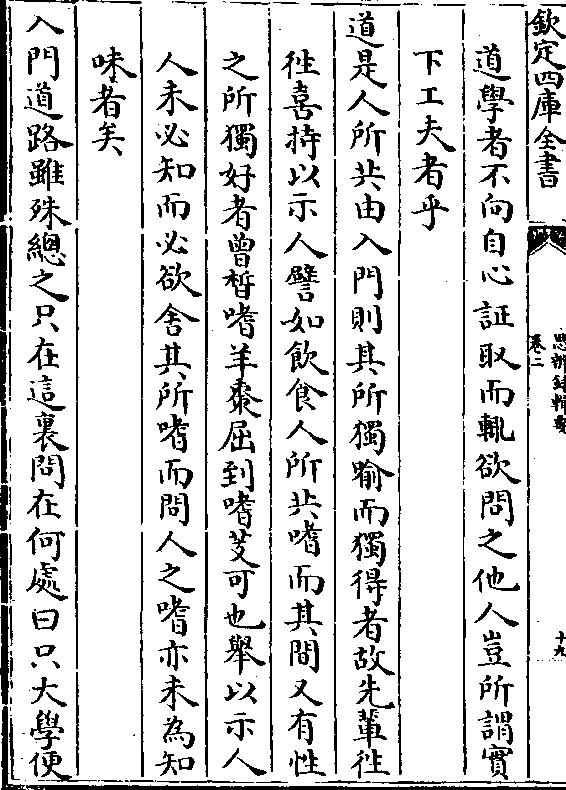 欽定四庫全書
思辨録輯要
卷二
十九
道學者不向自心証取而輒欲問之他人豈所謂實
下工夫者乎
道是人所共由入門則其所獨喻而獨得者故先輩徃
徃喜持以示人譬如飲食人所共嗜而其間又有性
之所獨好者曾晳嗜羊棗屈到嗜芰可也舉以示人
人未必知而必欲舍其所嗜而問人之嗜亦未為知
味者矣
入門道路雖殊總之只在這裏問在何處曰只大學便